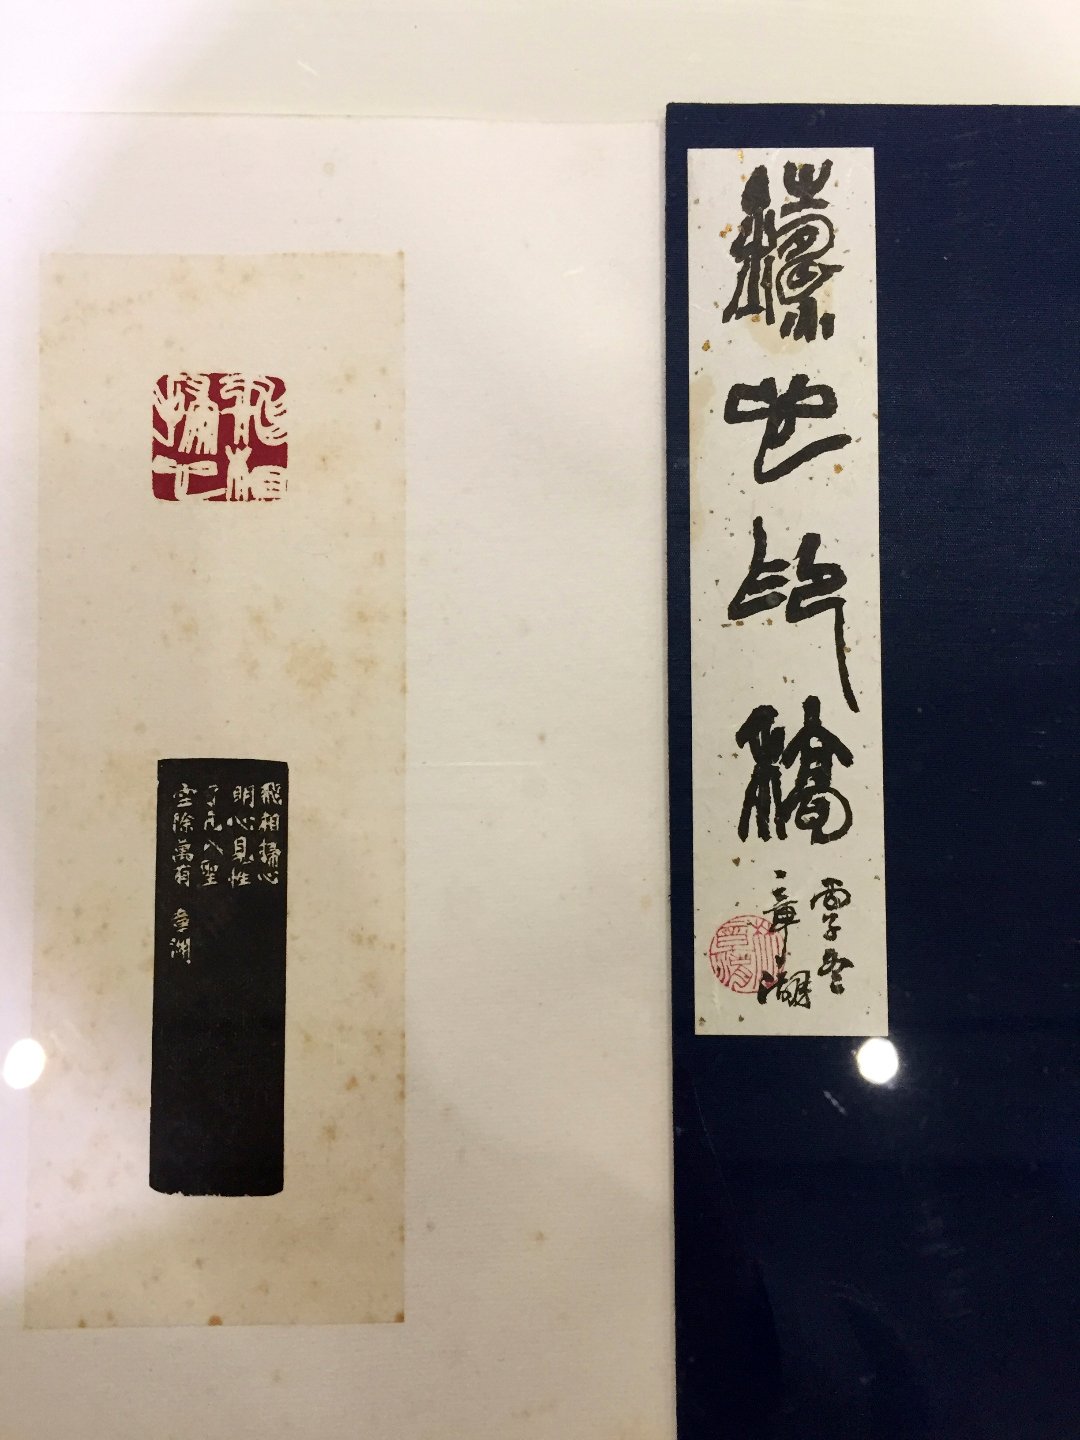 印稿
丙子冬
章湖
飛相
掃心
飛相掃心
明心見性
了凡入聖
空除萬有 章